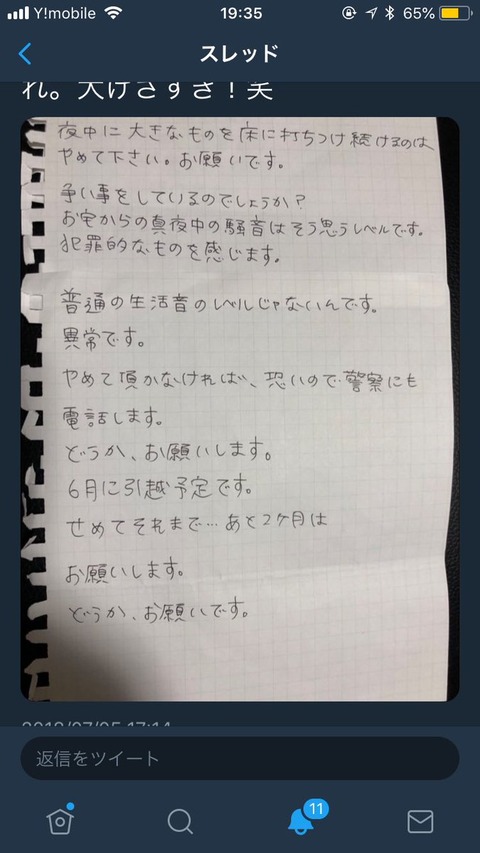 Y!mobile 19:35 65%
スレッド
れ。大げさすぎ！笑
夜中に大きなものを床に打ちつけ続けるのは
やめて下さい。お願いです。
争い事をしているのでしょうか？
お宅からの真夜中の騒音はそう思うレベルです。
犯罪的なものを感じます。
普通の生活音のレベルじゃないんです。
異常です。
やめて頂かなければ、恐いので警察にも
電話します。
どうか、お願いします。
6月に引越予定です。
せめてそれまで…あと2ケ月は
お願いします。
どうか、お願いです。
返信をツイート
11